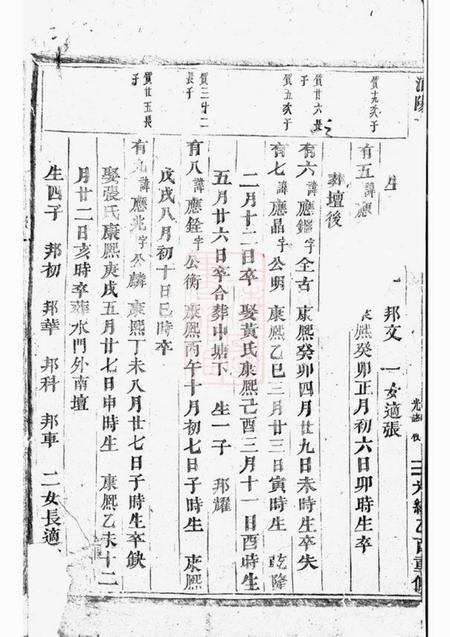 生 邦文 一女適張
質九次子
有五諱應 熙癸卯正月初六日卯時生卒
葬壇後
質廿六長子
有六諱應鐸字全古 康熙癸卯四月廿九日未時生卒失
質五次子
有七諱應晶字公明 康熙乙巳三月廿三日寅時生 乾隆
二月十二日卒 娶黃氏康熙己酉三月十一日酉時生
五月廿六日卒合葬中塘下 生一子 邦耀
質三十二長子
有八諱應銓字公衡 康熙丙午十月初七日子時生 康熙
戊戌八月初十日巳時卒
質廿五長子
有九諱應兆字公麟 康熙丁未八月廿七日子時生卒缺
娶張氏康熙庚戌五月廿七日申時生 康熙乙未十二
月廿二日亥時卒葬水門外南壇
生四子 邦初 邦華 邦科 邦車 二女長適